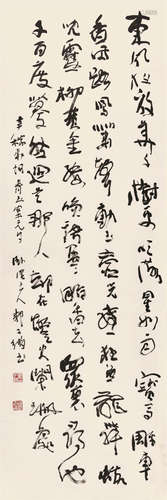 東風夜放花千樹更吹落星如雨寶馬雕車
香滿路鳳簫聲動玉壺光轉一夜魚龍舞蛾
兒雪柳黃金縷笑語盈盈暗香去眾裏尋他
千百度驀然迴首那人却在燈火闌珊處
辛稼軒詞青玉案元夕 人郭子緒書